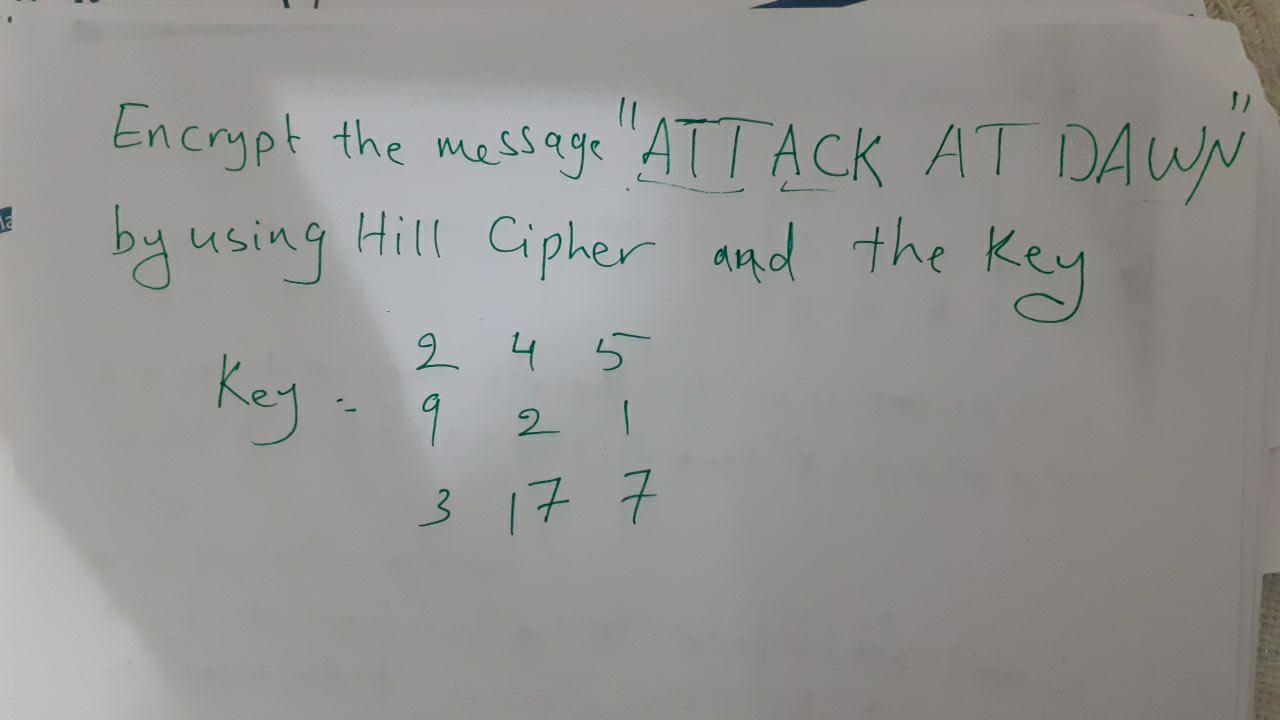 Encrypt the message "ATTACK AT DAWN"
by using Hill Cipher and the Key
Key = 2 4 5
9 2 1
3 17 7